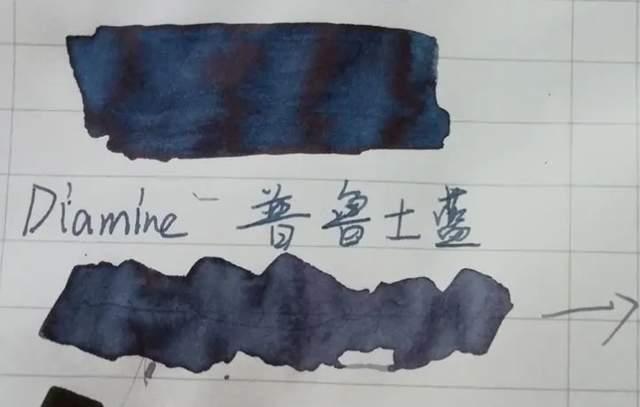 Diamine - 普鲁士蓝